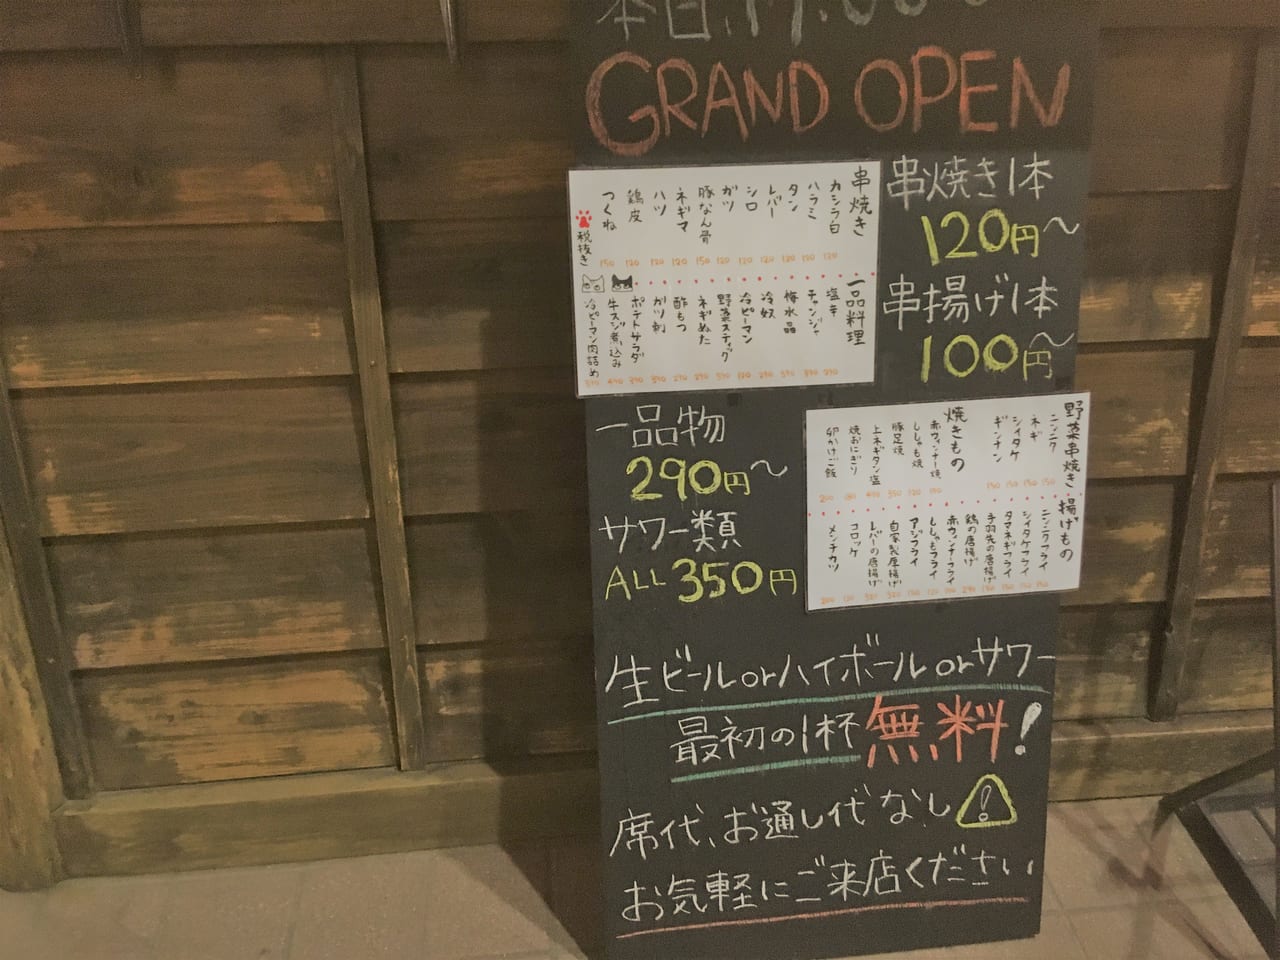 本日、17:00
GRAND OPEN
串焼き1本
120円〜
串揚げ1本
100円〜
串焼き
カシラ白 120
ハラミ 120
タン 120
レバー 120
シロ 120
ガツ 120
豚なん骨 150
ネギマ 120
ハツ 120
鶏皮 120
つくね 150
税抜き
一品料理
塩辛 290
チャンジャ 390
梅水晶 390
冷奴 290
冷ピーマン
野菜スティック 390
ネギぬた 290
酢もつ 290
ガツ刺 390
ポテトサラダ 390
牛スジ煮込み 490
冷ピーマン肉詰め
一品物
290円〜
サワー類
ALL 350円
野菜串焼き
ニンニク 150
ネギ 150
シイタケ 150
ギンナン 150
焼きもの
赤ウィンナー焼
ししゃも焼
豚足焼 350
上ネギタン塩 490
焼おにぎり
卵かけご飯 200
揚げもの
ニンニクフライ
シイタケフライ
タマネギフライ
手羽先の唐揚げ
鶏の唐揚げ
赤ウィンナーフライ
ししゃもフライ
アジフライ
自家製厚揚げ
レバーの唐揚げ
コロッケ
メンチカツ
生ビールorハイボールorサワー
最初の1杯無料!
席代、お通し代なし
お気軽にご来店ください